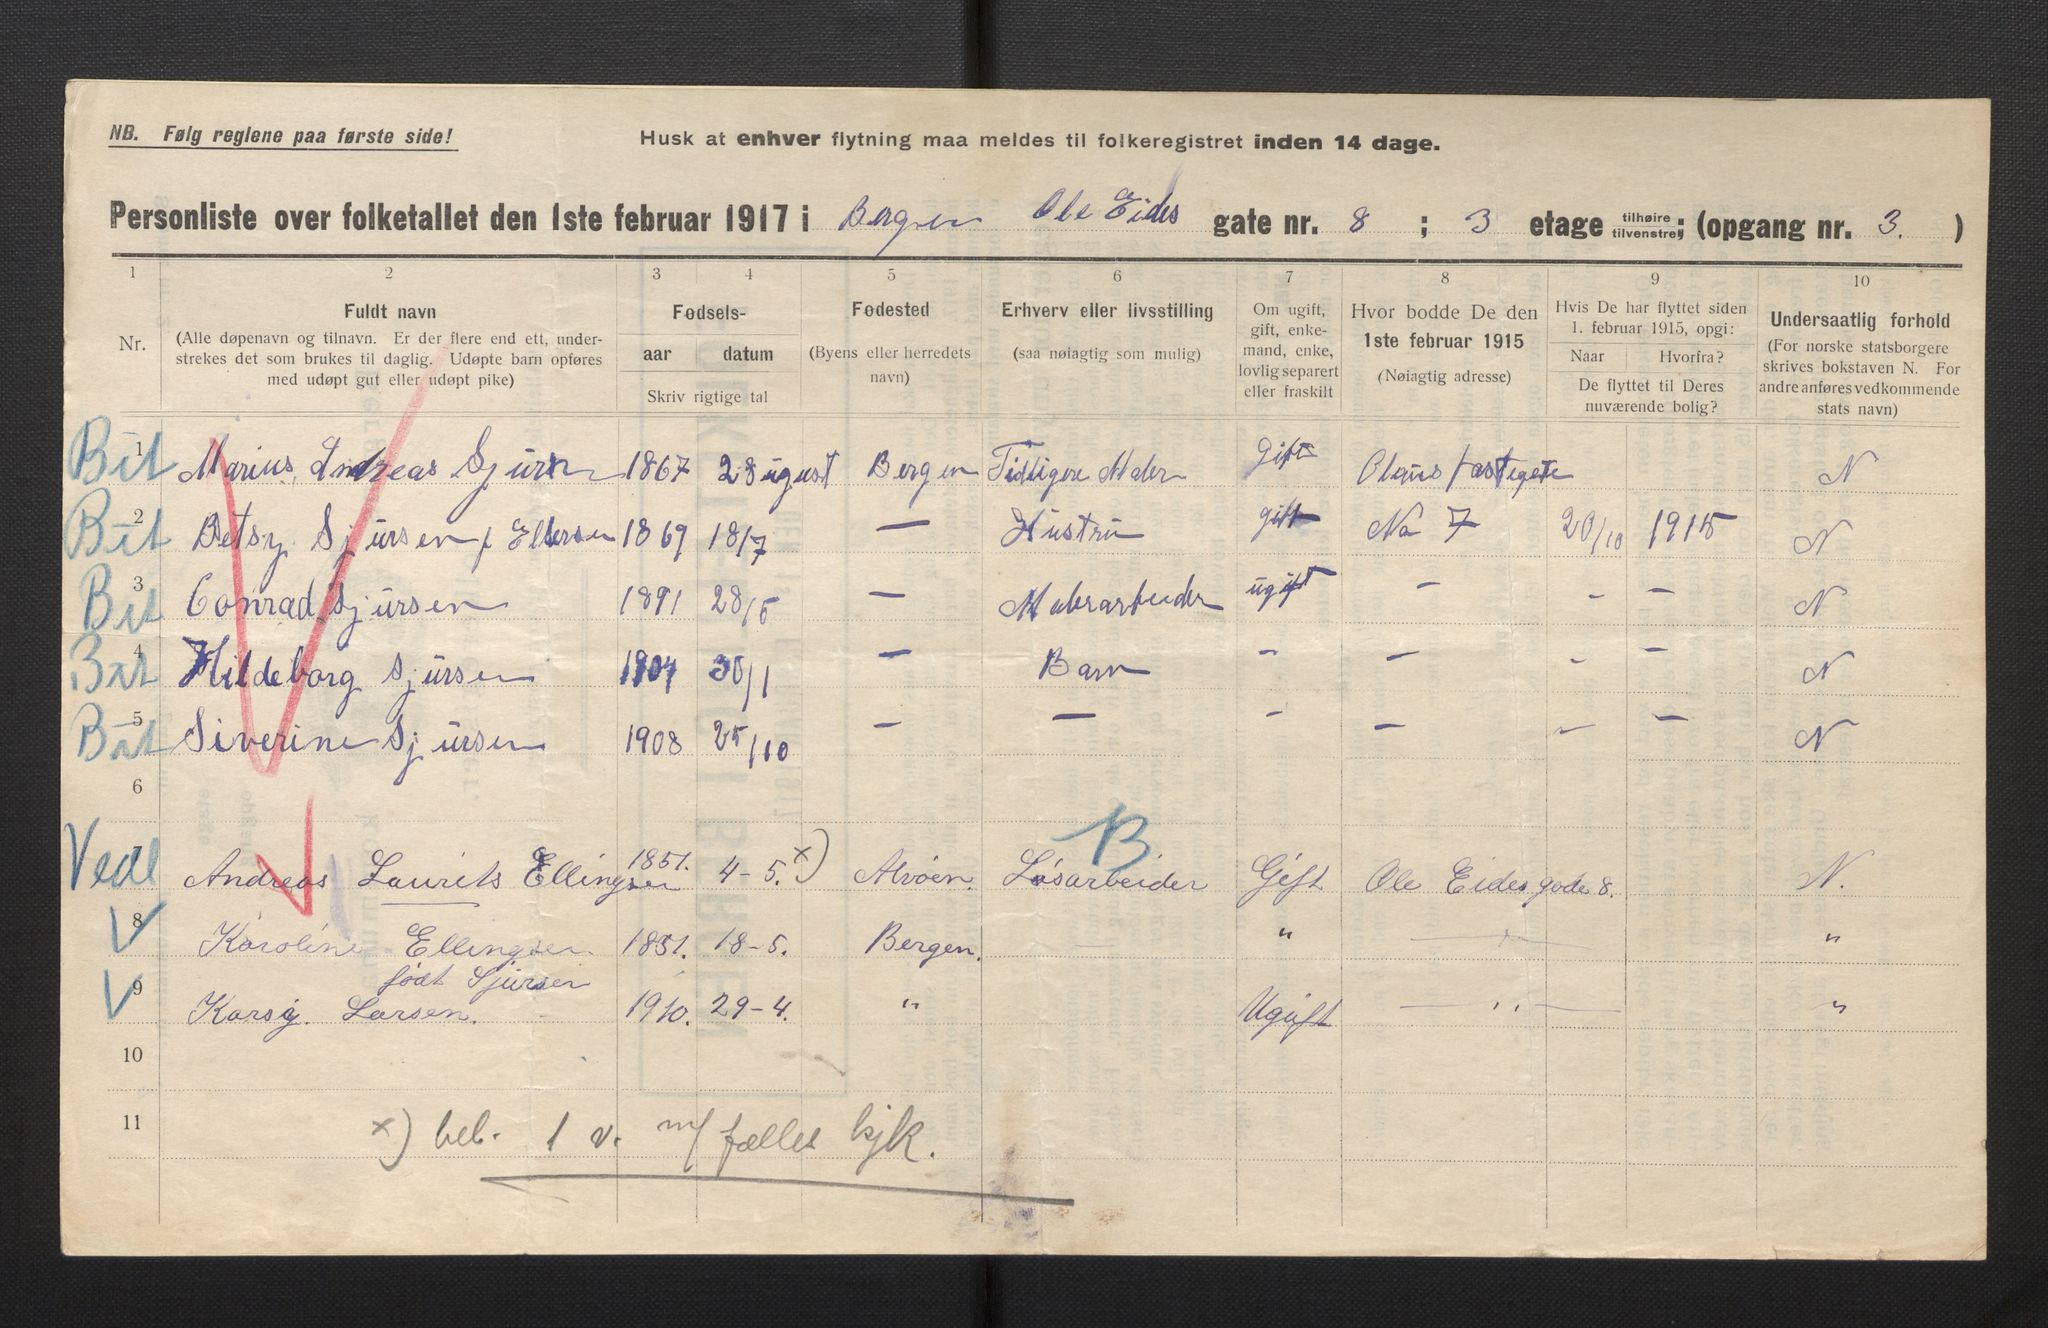 NB. Følg reglene paa første side!
Husk at enhver flytning maa meldes til folkeregistret inden 14 dage.
Personliste over folketallet den 1ste februar 1917 i Bergen Ole Eides gate nr. 8 ; 3 etage tilhøire tilvenstre; (opgang nr. 3. )
1 2 3 4 5 6 7 8 9 10
Nr.
Fuldt navn
(Alle døpenavn og tilnavn. Er der flere end ett, under-
strekes det som brukes til daglig. Udøpte barn opføres
med udøpt gut eller udøpt pike)
Fødsels-
aar datum
Skriv rigtige tal
Fødested
(Byens eller herredets
navn)
Erhverv eller livsstilling
(saa nøiagtig som mulig)
Om ugift,
gift, enke-
mand, enke,
lovlig separert
eller fraskilt
Hvor bodde De den
1ste februar 1915
(Nøiagtig adresse)
Hvis De har flyttet siden
1. februar 1915, opgi:
Naar Hvorfra?
De flyttet til Deres
nuværende bolig?
Undersaatlig forhold
(For norske statsborgere
skrives bokstaven N. For
andre anføres vedkommende
stats navn)
1 Marius Andreas Sjursen 1867 28 ugust Bergen Tidligere Maler gift Olaus N
2 Betsy Sjursen f 1869 18/7 — Hustru gift No 7 20/10 1915 N
3 Conrad Sjursen 1891 28/5 — Malerarbeider ugift - - - N
4 Hildeborg Sjursen 1904 30/1 — Barn - - - - N
5 Siverine Sjursen 1908 25/10 — — - - - - N
6
B
Vedl 7 Andreas Laurits Ellingsen 1851. 4-5. x) Alvøen. Løsarbeider Gift Ole Eides gade 8. N.
V 8 Karoline Ellingsen 1851. 18-5. Bergen. " — " — "
født Sjursen
V 9 Larsen. 1910. 29-4. " Ugift — " — "
10
11
x) beb. 1 v. m/ fælles kjk.